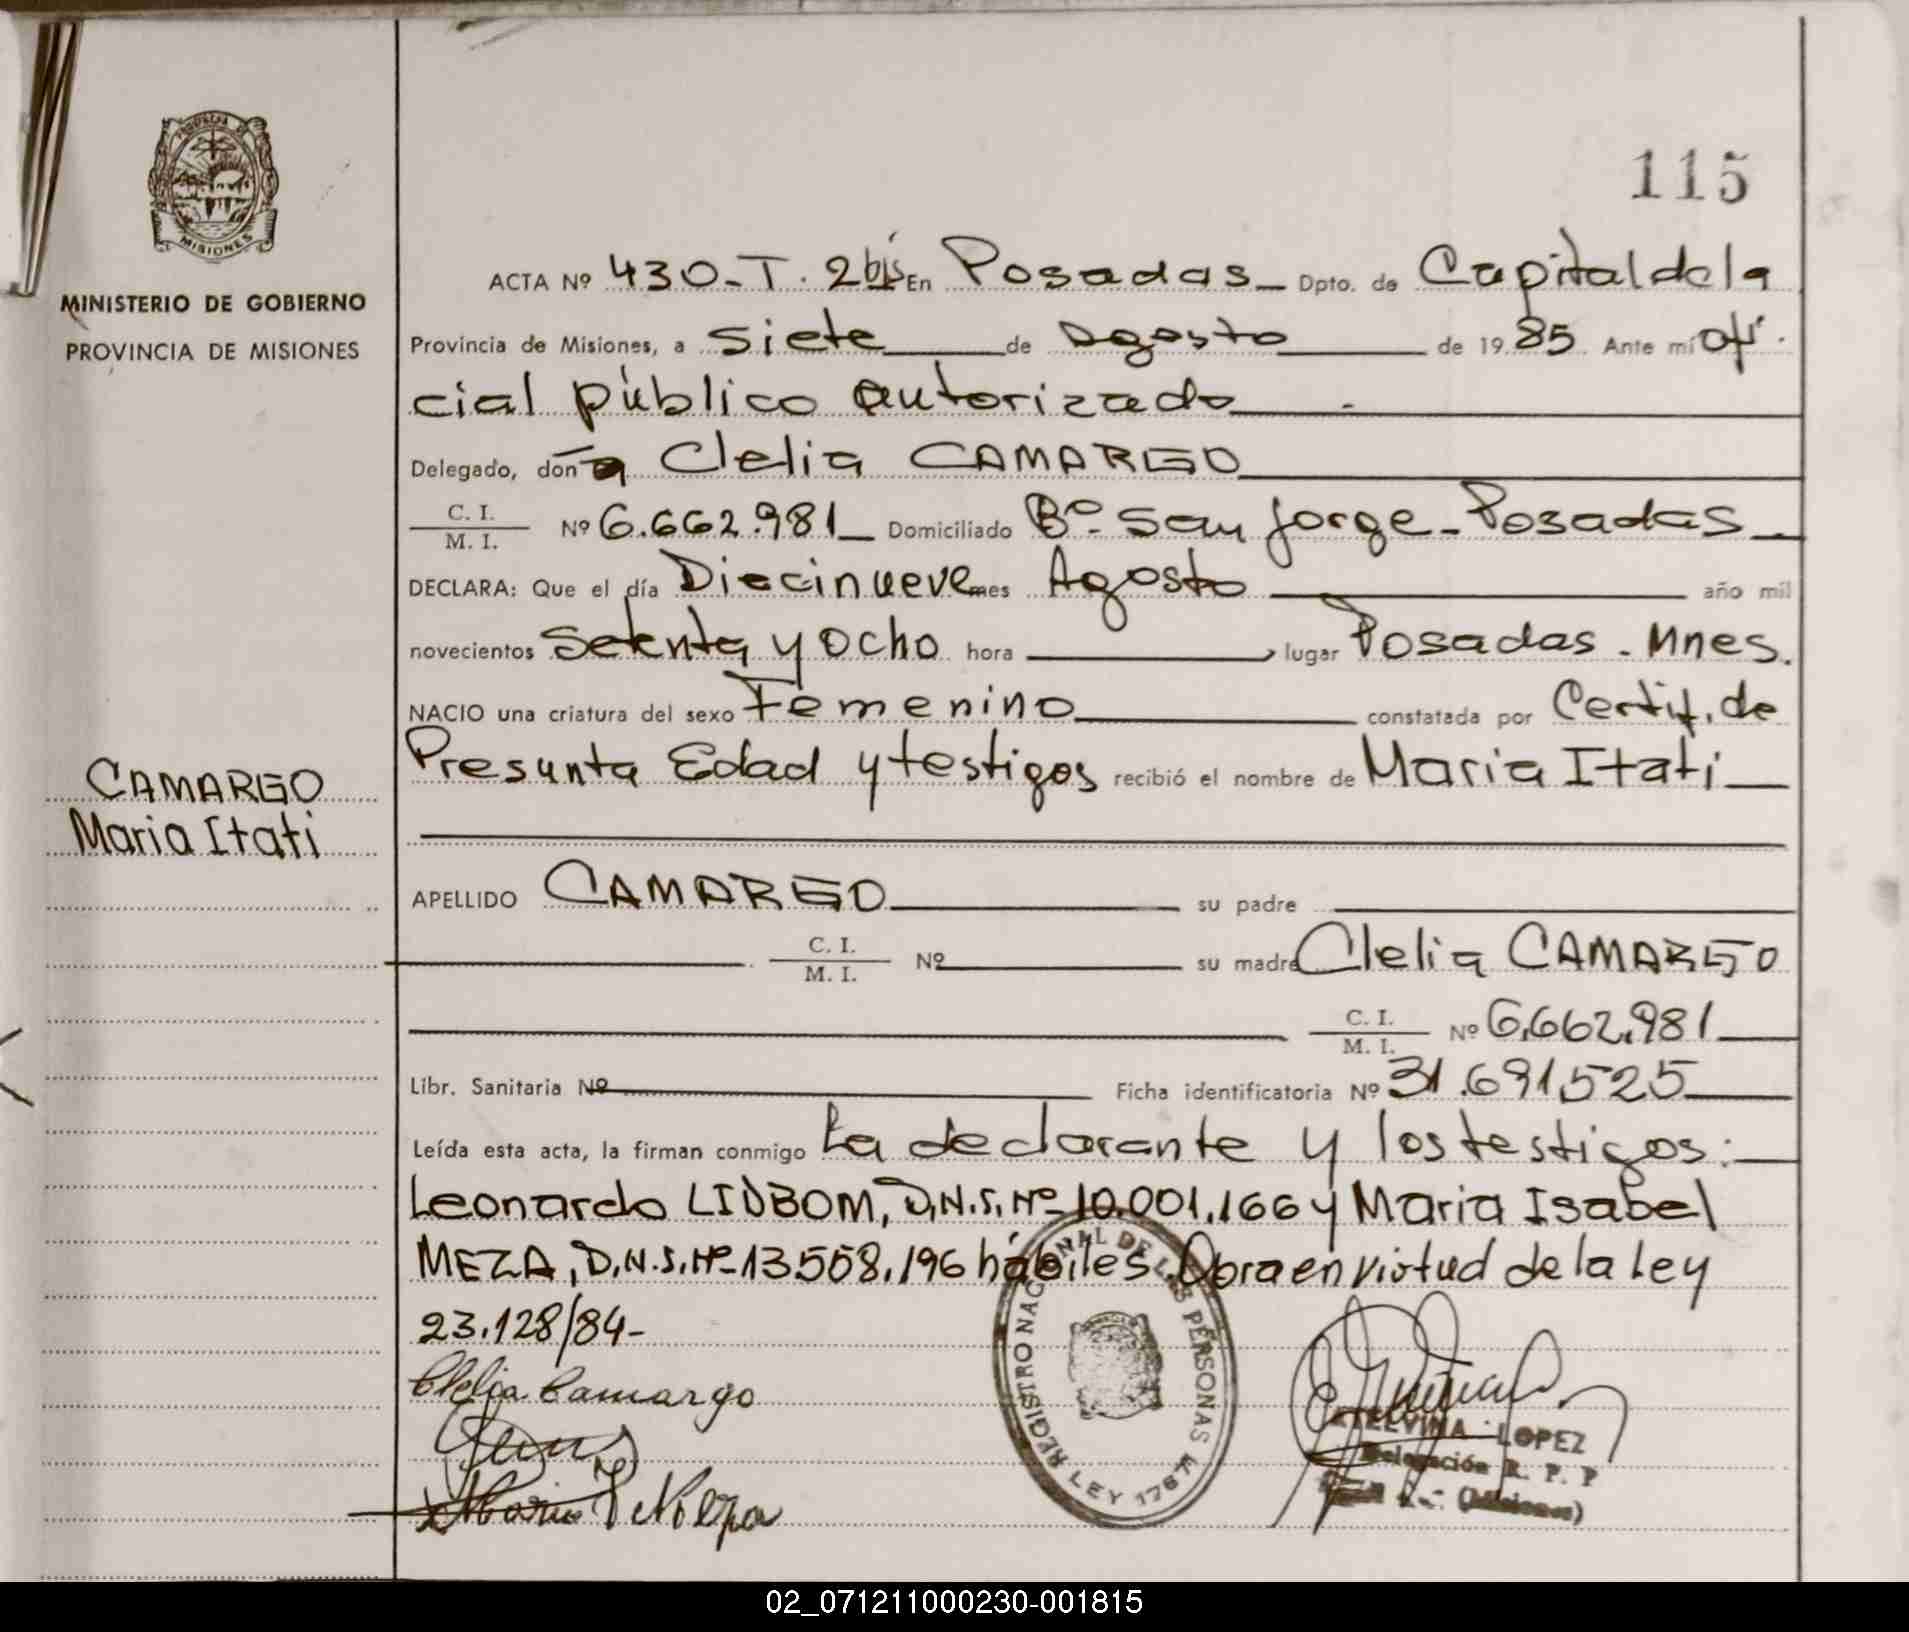 115
MINISTERIO DE GOBIERNO
PROVINCIA DE MISIONES
PROVINCIA DE
MISIONES
CAMARGO
Maria Itati
ACTA Nº 430-T. 2 bis En Posadas Dpto. de Capital de la
Provincia de Misiones, a siete de agosto de 1985 Ante mí ofi-
cial público autorizado
Delegado, doña Clelia CAMARGO
C. I. / M. I. Nº 6.662.981 Domiciliado Bº San Jorge - Posadas
DECLARA: Que el día Diecinueve mes Agosto año mil
novecientos setenta y ocho hora lugar Posadas - Mnes.
NACIO una criatura del sexo Femenino constatada por Certif. de
Presunta Edad y testigos recibió el nombre de Maria Itati
APELLIDO CAMARGO su padre
C. I. / M. I. Nº su madre Clelia CAMARGO
C. I. / M. I. Nº 6.662.981
Libr. Sanitaria Nº Ficha identificatoria Nº 31.691.525
Leída esta acta, la firman conmigo La declarante y los testigos:
Leonardo LIDBOM, D.N.I. Nº 10.001.166 y Maria Isabel
MEZA, D.N.I. Nº 13.558.196 hábiles. Obra en virtud de la Ley
23.128/84-
Clelia Camargo
REGISTRO NACIONAL DE LAS PERSONAS
LEY 17671
ETELVINA LOPEZ
Delegación R. P. P
(Misiones)
02_071211000230-001815